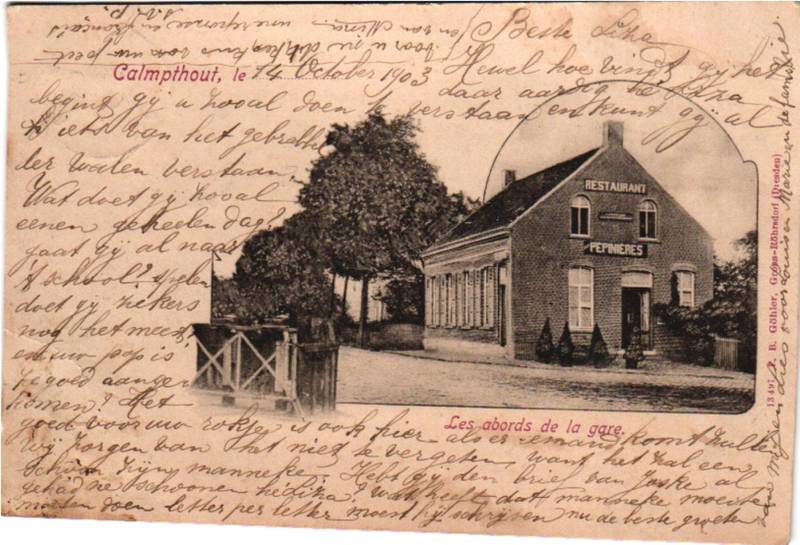 Beste Liza
Calmpthout, le 14 October 1903 Hewel hoe vindt gij het
daar aardig he Liza
begint gij u hooal doen te verstaan en kunt gij al
iets van het gebrabbel
der walen verstaan.
Wat doet gij hooal
eenen geheelen dag?
gaat gij al naar
school? spelen
doet gij zekers
nog het meest
en uw pop is
ze goed aange
komen? Het
goed voor uw rokje is ook hier als er iemand komt zullen
wij zorgen van het niet te vergeten, want het zal een
schoon zijn, manneke. Hebt gij den brief van Joske al
gehad ne schoonen hé Liza? wat heeft dat manneke moeite
moeten doen letter per letter moest hij schrijven nu de beste groeten
van mij en voor Louis en Marie en de familie.
RESTAURANT
PEPINIÈRES
Les abords de la gare.